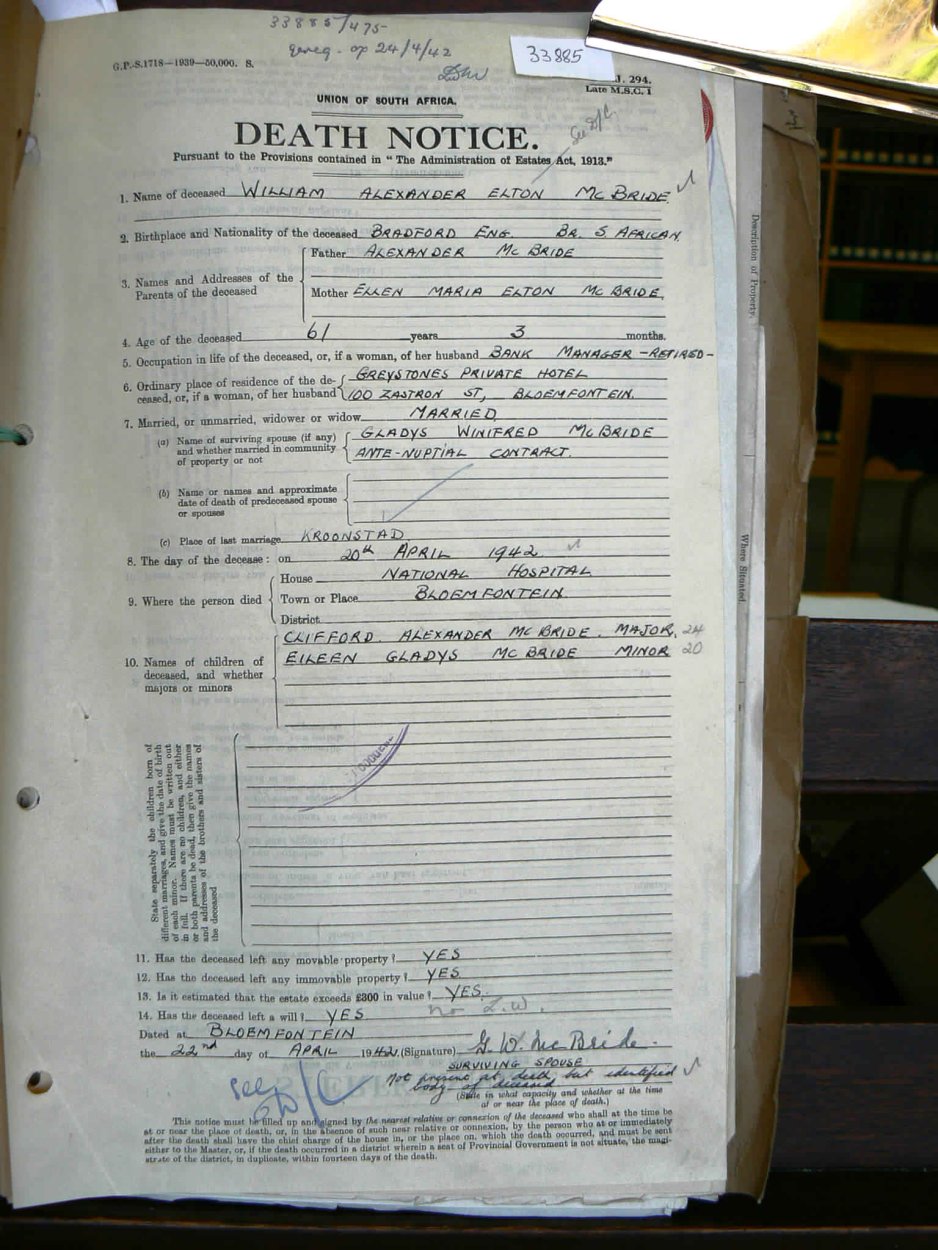 33885/475
gereg. op 24/4/42
33885
G.P.-S.1718—1939—50,000. S.
J. 294.
Late M.S.C. 1
UNION OF SOUTH AFRICA.
DEATH NOTICE.
See D/C.
Pursuant to the Provisions contained in "The Administration of Estates Act, 1913."
1. Name of deceased WILLIAM ALEXANDER ELTON McBRIDE
2. Birthplace and Nationality of the deceased BRADFORD ENG. BR. S. AFRICAN.
3. Names and Addresses of the Parents of the deceased
Father ALEXANDER McBRIDE
Mother ELLEN MARIA ELTON McBRIDE.
4. Age of the deceased 61 years 3 months.
5. Occupation in life of the deceased, or, if a woman, of her husband BANK MANAGER -RETIRED-
6. Ordinary place of residence of the de- GREYSTONES PRIVATE HOTEL
ceased, or, if a woman, of her husband 100 ZASTRON ST, BLOEMFONTEIN.
7. Married, or unmarried, widower or widow MARRIED
(a) Name of surviving spouse (if any) and whether married in community of property or not
GLADYS WINIFRED McBRIDE
ANTE-NUPTIAL CONTRACT.
(b) Name or names and approximate
date of death of predeceased spouse
or spouses
(c) Place of last marriage KROONSTAD
8. The day of the decease: on 20th APRIL 1942
9. Where the person died
House NATIONAL HOSPITAL
Town or Place BLOEMFONTEIN
District
10. Names of children of
deceased, and whether
majors or minors
CLIFFORD. ALEXANDER McBRIDE. MAJOR. 24
EILEEN GLADYS McBRIDE MINOR 20
State separately the children born of
different marriages, and give the date of birth
of each minor. Names must be written out
in full. If there are no children, and either
or both parents be dead, then give the names
and addresses of the brothers and sisters of
the deceased
11. Has the deceased left any movable property? YES
12. Has the deceased left any immovable property? YES.
13. Is it estimated that the estate exceeds £300 in value? YES.
14. Has the deceased left a will? YES no L.W.
Dated at BLOEMFONTEIN
the 22nd day of APRIL 1942. (Signature) G. W. McBride.
SURVIVING SPOUSE
Not present at death but identified
body of deceased
(State in what capacity and whether at the time
at or near the place of death.)
See
D/C
This notice must be filled up and signed by the nearest relative or connexion of the deceased who shall at the time be
at or near the place of death, or, in the absence of such near relative or connexion, by the person who at or immediately
after the death shall have the chief charge of the house in, or the place on, which the death occurred, and must be sent
either to the Master, or, if the death occurred in a district wherein a seat of Provincial Government is not situate, the magi-
strate of the district, in duplicate, within fourteen days of the death.
Description of Property.
Where Situated.